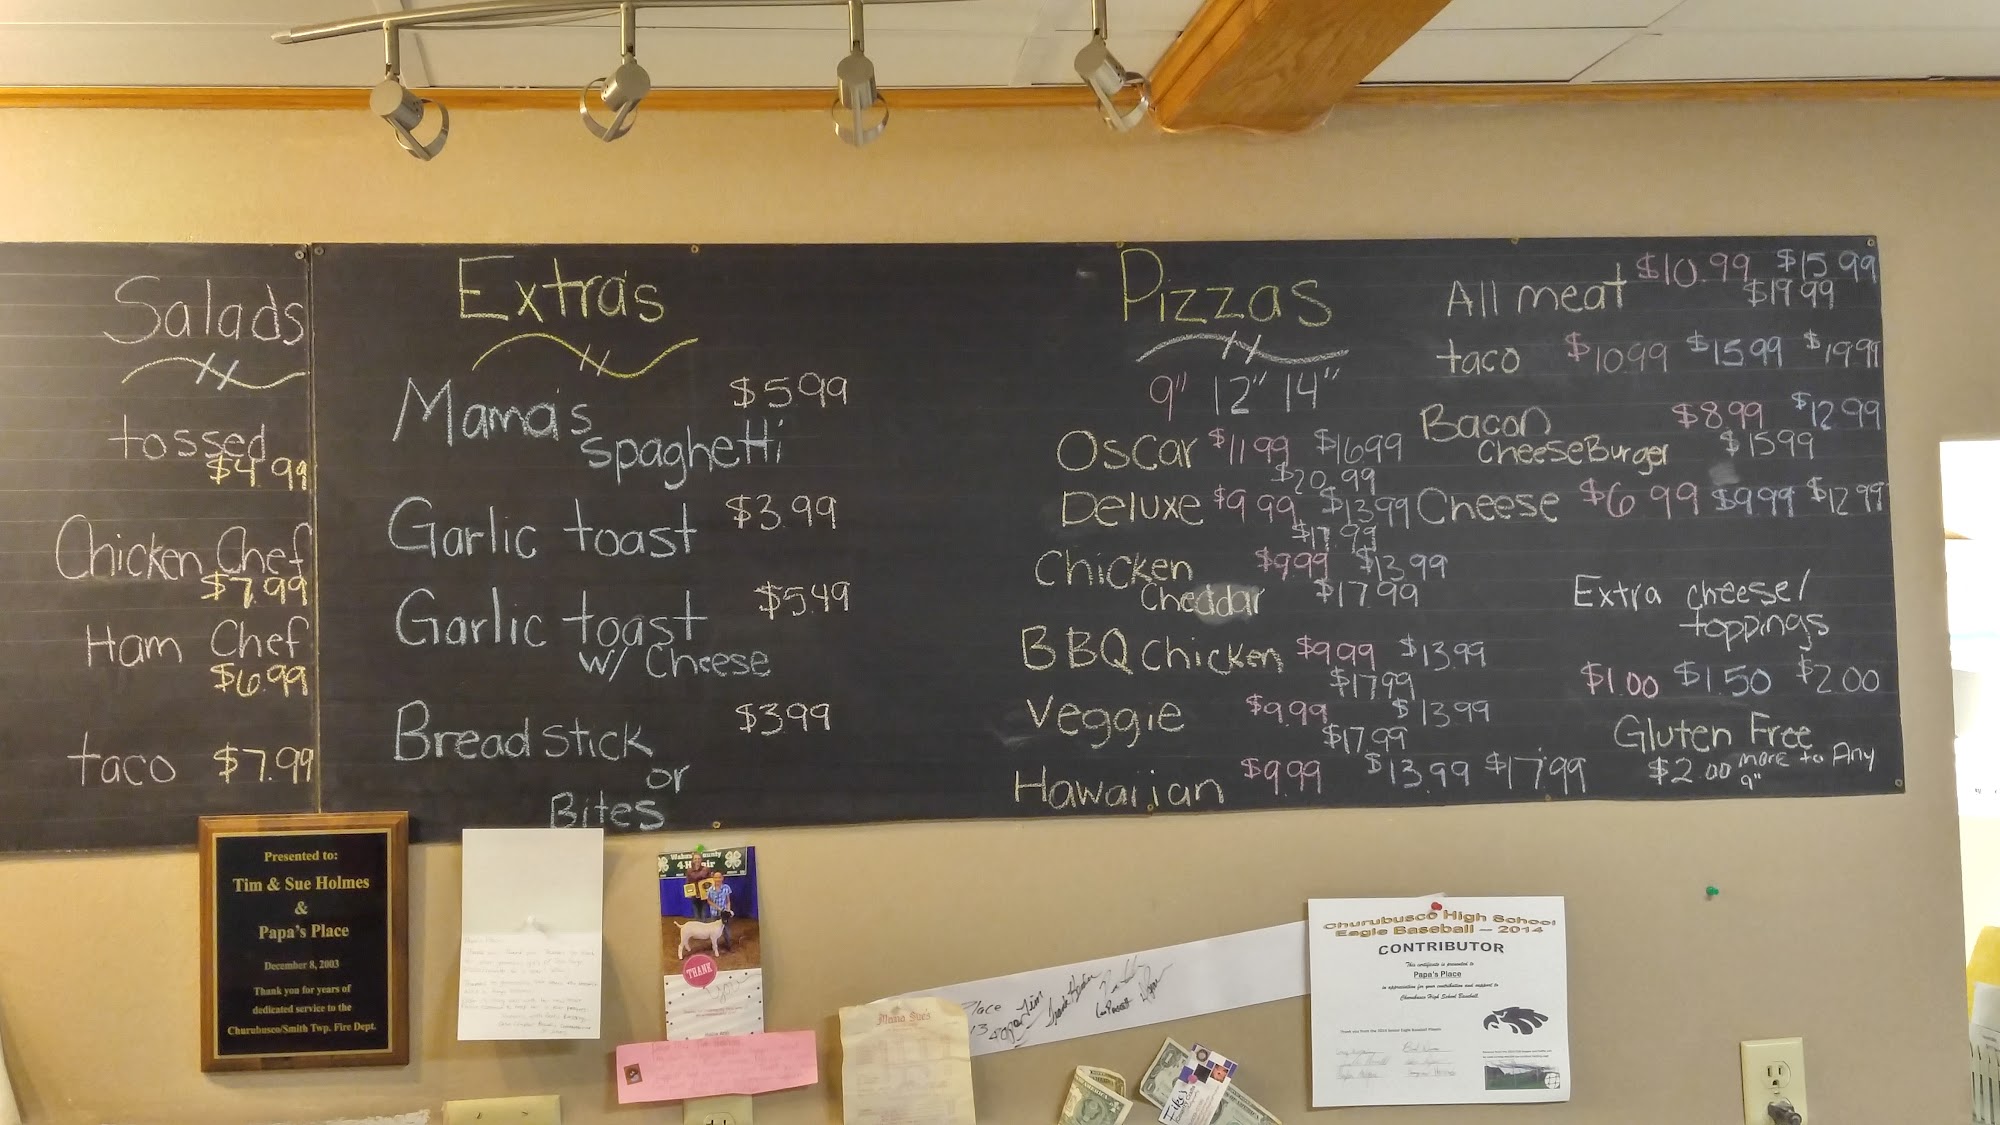 Salads
tossed
$4.99
Chicken Chef
$7.99
Ham Chef
$6.99
taco $7.99
Extra's
Mama's $5.99
spaghetti
Garlic toast $3.99
Garlic toast $5.49
w/ Cheese
Bread stick $3.99
or
Bites
Pizzas
9" 12" 14"
Oscar $11.99 $16.99
$20.99
Deluxe $9.99 $13.99
$17.99
Chicken $9.99 $13.99
Cheddar $17.99
BBQ Chicken $9.99 $13.99
$17.99
Veggie $9.99 $13.99
$17.99
Hawaiian $9.99 $13.99 $17.99
All meat $10.99 $15.99
$19.99
taco $10.99 $15.99 $19.99
Bacon $8.99 $12.99
CheeseBurger $15.99
Cheese $6.99 $9.99 $12.99
Extra cheese/
toppings
$1.00 $1.50 $2.00
Gluten Free
$2.00 more to Any
9"
Presented to:
Tim & Sue Holmes
&
Papa's Place
December 8, 2003
Thank you for years of
dedicated service to the
Churubusco/Smith Twp. Fire Dept.
4-H Fair
THANK
Mama Sue's
Place
13
Churubusco High School
Eagle Baseball — 2014
CONTRIBUTOR
This certificate is presented to
Papa's Place
in appreciation for your contribution and support to
Churubusco High School Baseball